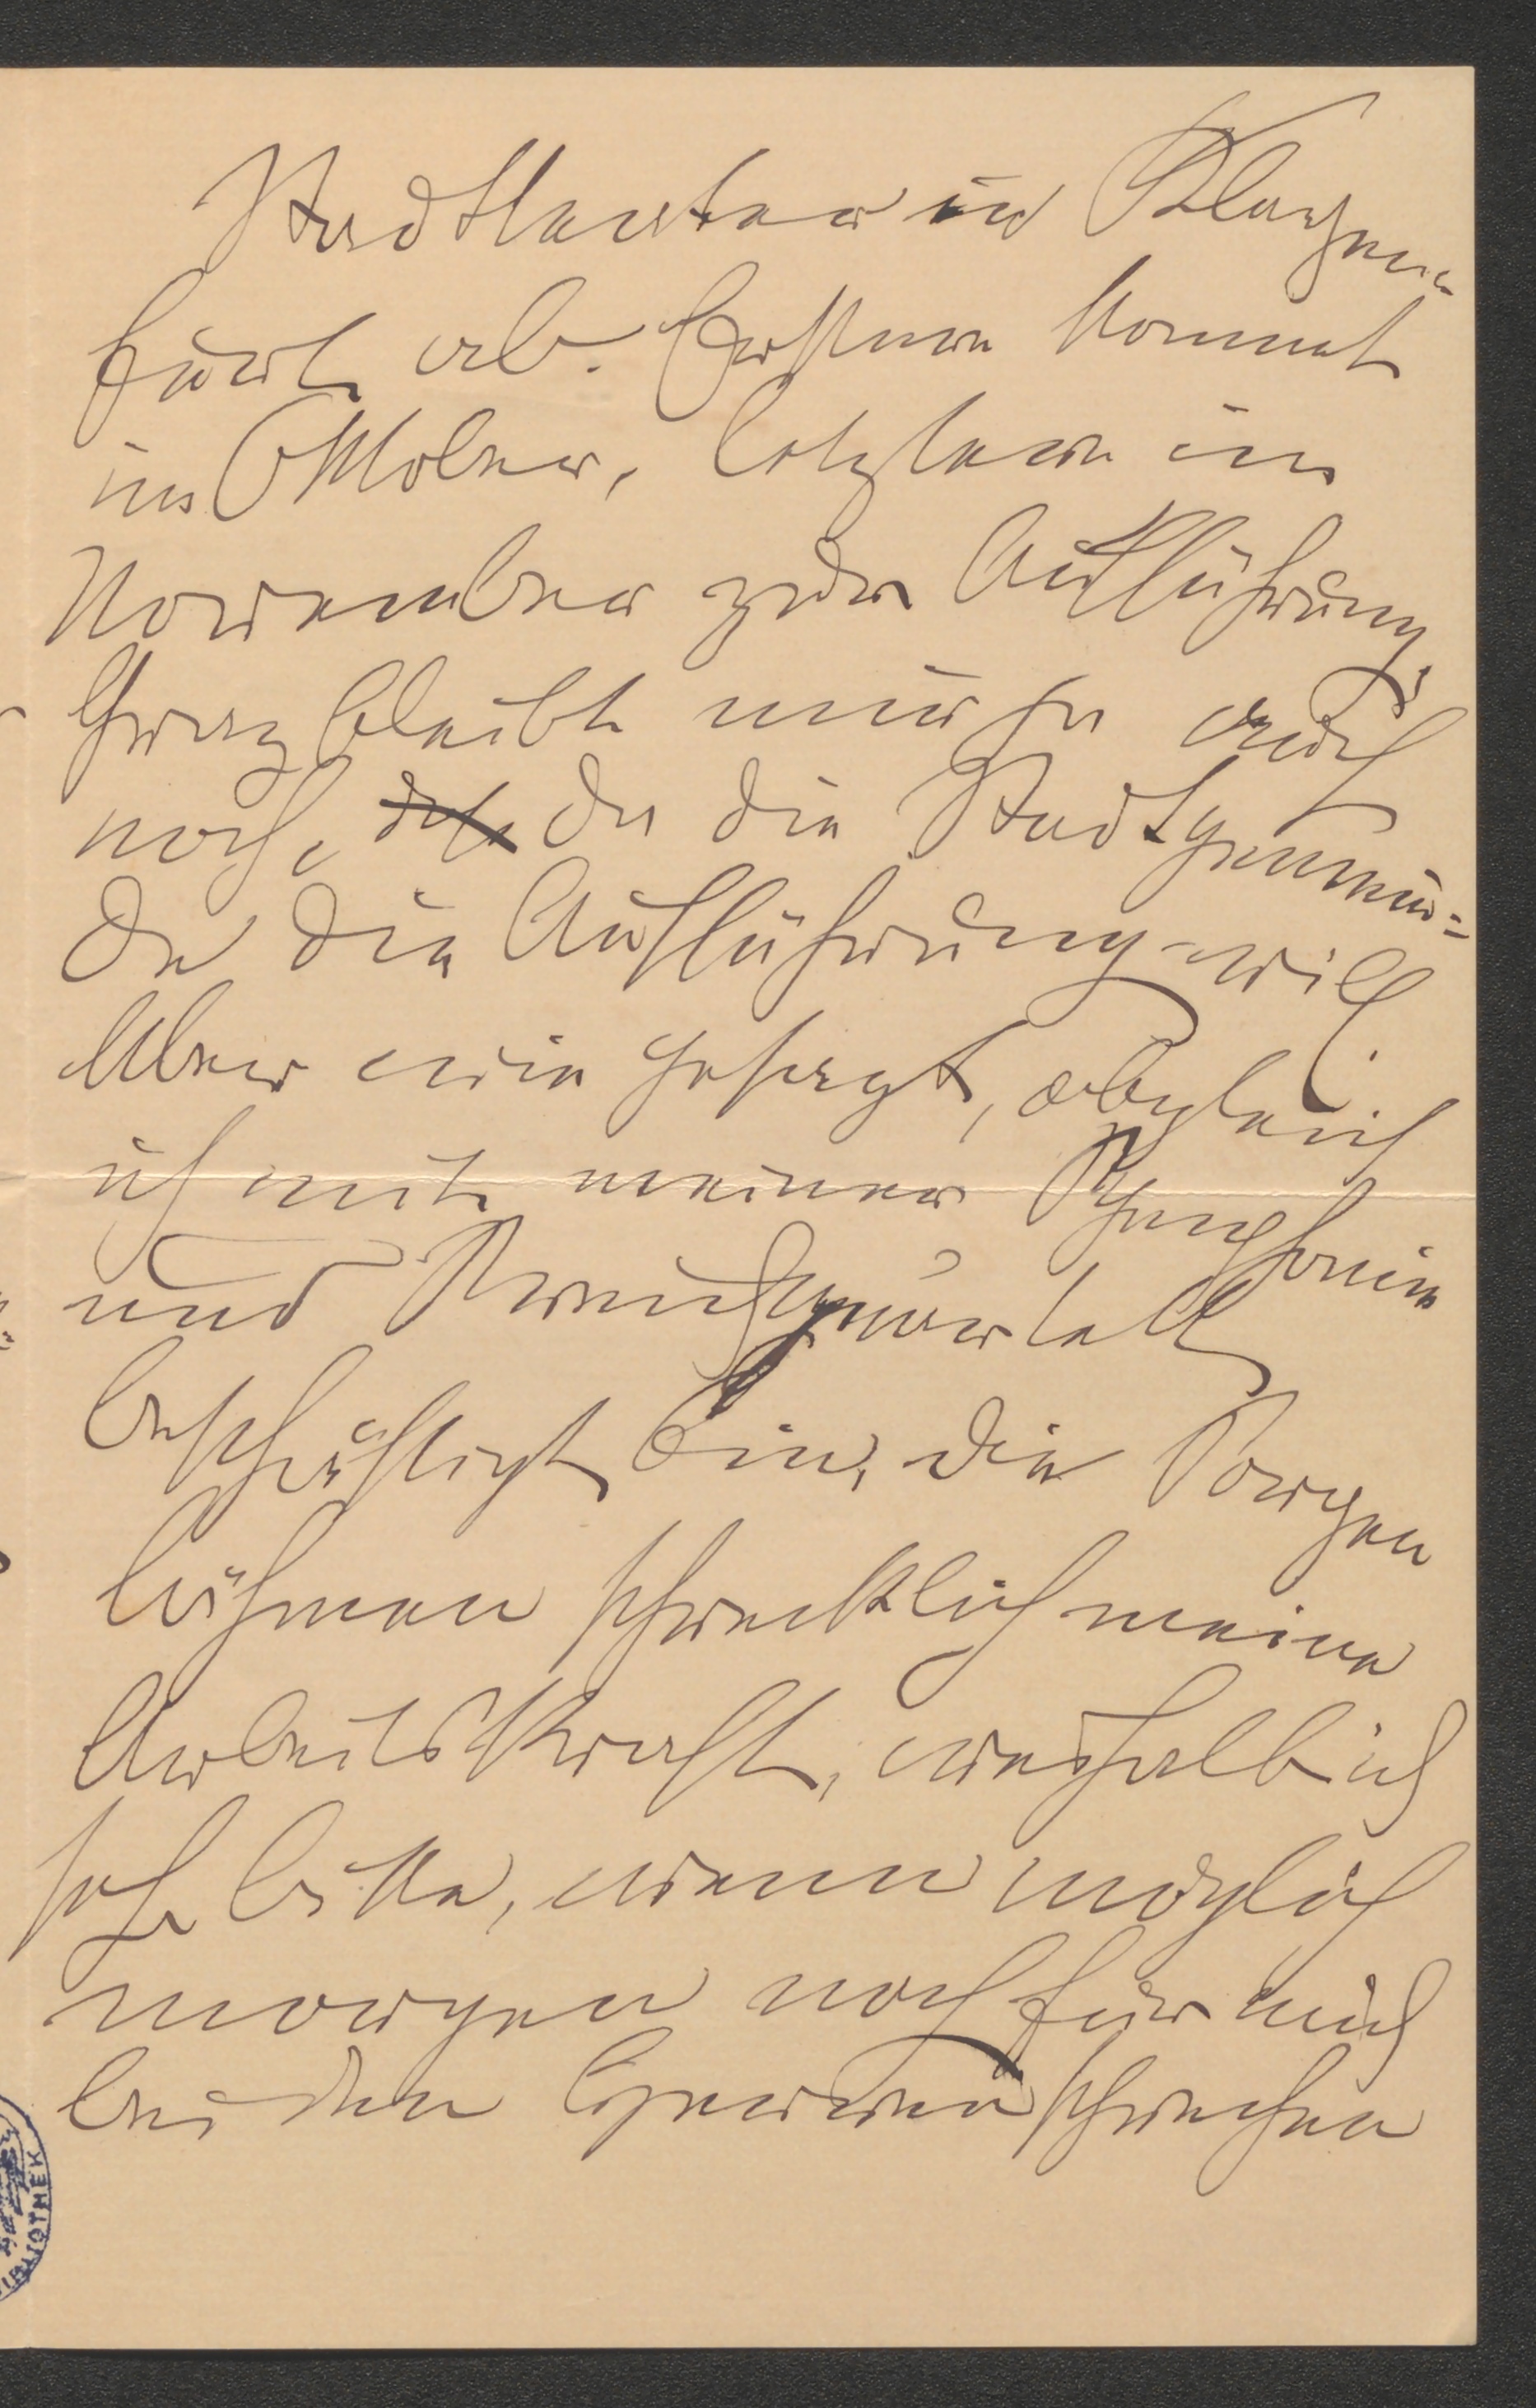 Stadttheater in Klagen-
furt ab. Erstere kommt
im Oktober, letztere im
November zur Aufführung.
Graz bleibt mir ja auch
noch, da die Stadtgemein=
de die Aufführung will.
Aber wie gesagt, obgleich
ich mit meiner Symphonie
und Streichquartett
beschäftigt bin, die Sorgen
lähmen schrecklich meine
Arbeitskraft, weshalb ich
sehr bitte, wenn möglich
morgen noch für mich
bei den
BIBLIOTHEK